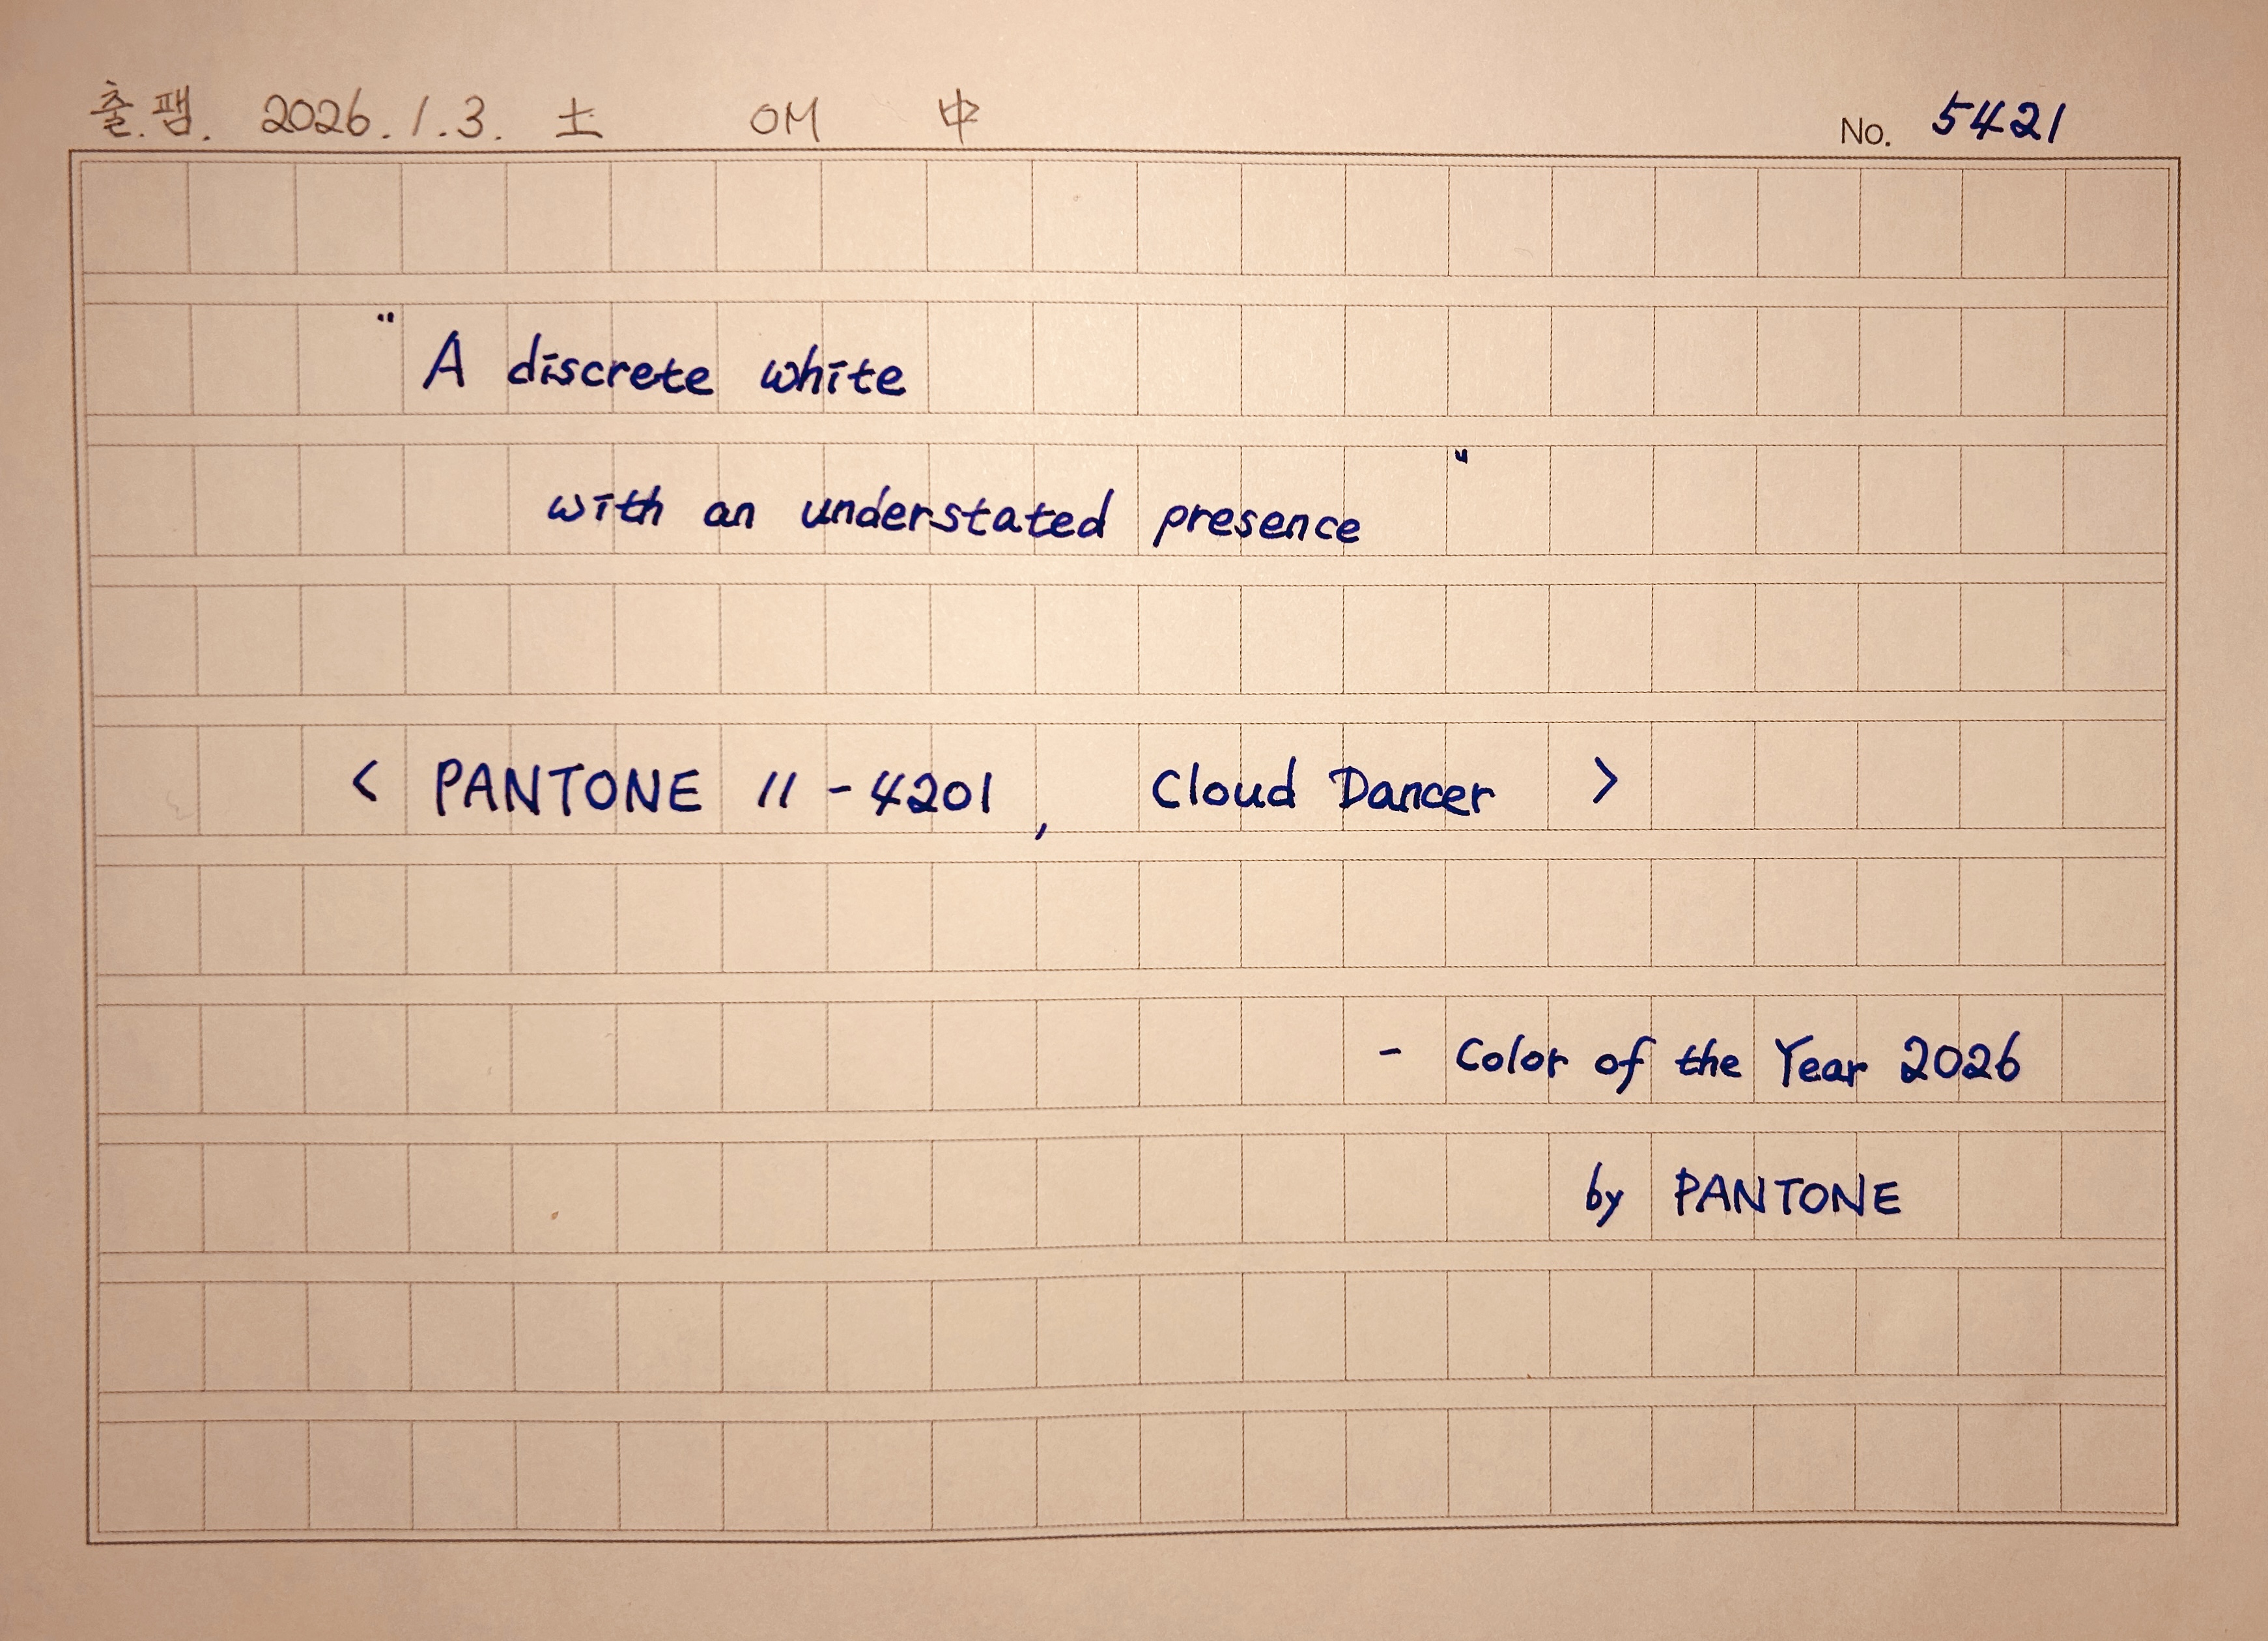 출.팸. 2026.1.3. 土 OM 中 No. 5421
"A discrete white
with an understated presence"
< PANTONE 11-4201, Cloud Dancer >
- Color of the Year 2026
by PANTONE